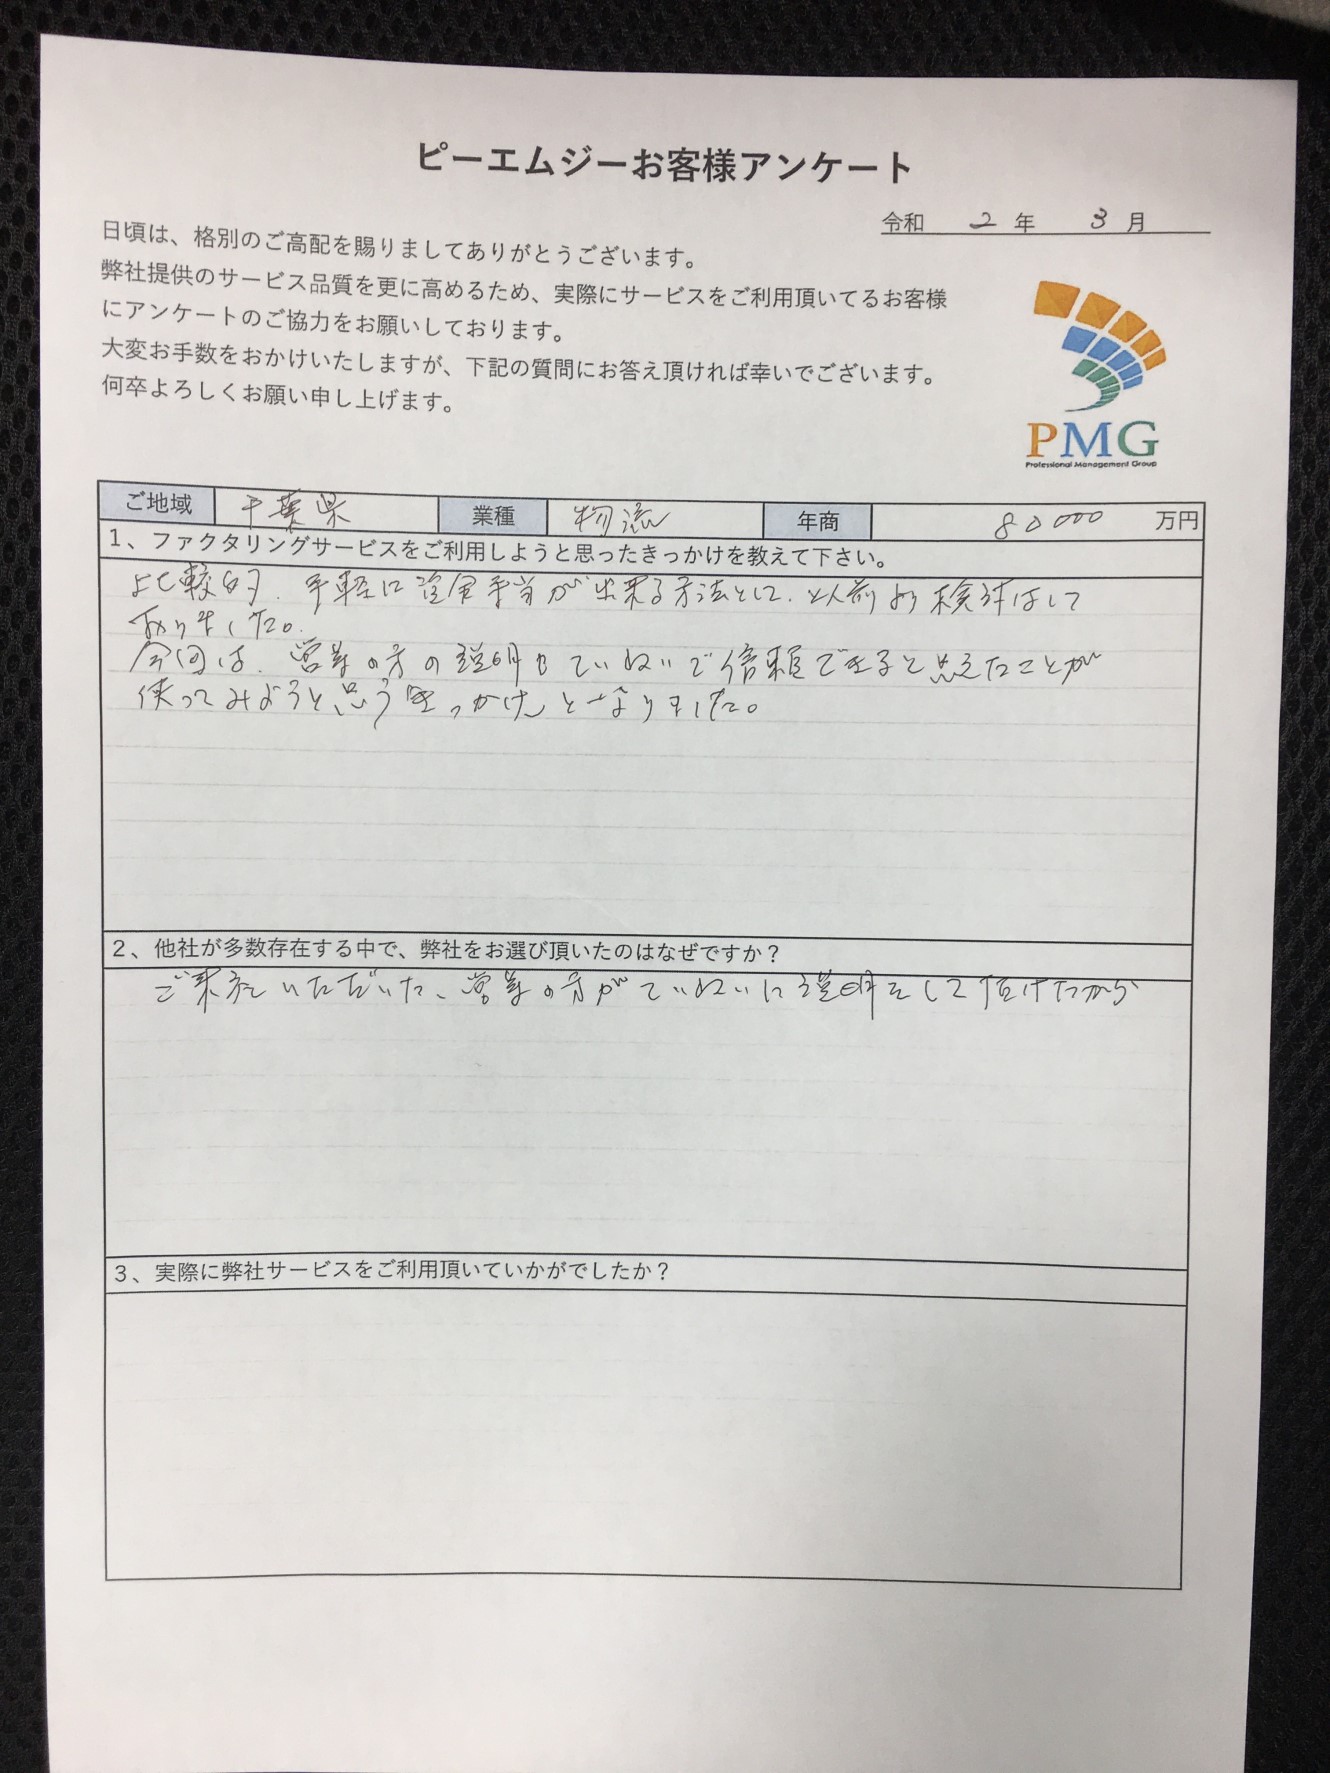 ピーエムジーお客様アンケート
令和 2 年 3 月
日頃は、格別のご高配を賜りましてありがとうございます。
弊社提供のサービス品質を更に高めるため、実際にサービスをご利用頂いてるお客様
にアンケートのご協力をお願いしております。
大変お手数をおかけいたしますが、下記の質問にお答え頂ければ幸いでございます。
何卒よろしくお願い申し上げます。
PMG
Professional Management Group
ご地域 千葉県 業種 物流 年商 80000 万円
1、ファクタリングサービスをご利用しようと思ったきっかけを教えて下さい。
比較的、手軽に資金手当が出来る方法として、以前より検討はして
おりました。
今回は、営業の方の説明もていねいで信頼できると思えたことが
使ってみようと思う「きっかけ」となりました。
2、他社が多数存在する中で、弊社をお選び頂いたのはなぜですか？
ご来社いただいた、営業の方がていねいに説明をして頂けたから
3、実際に弊社サービスをご利用頂いていかがでしたか？